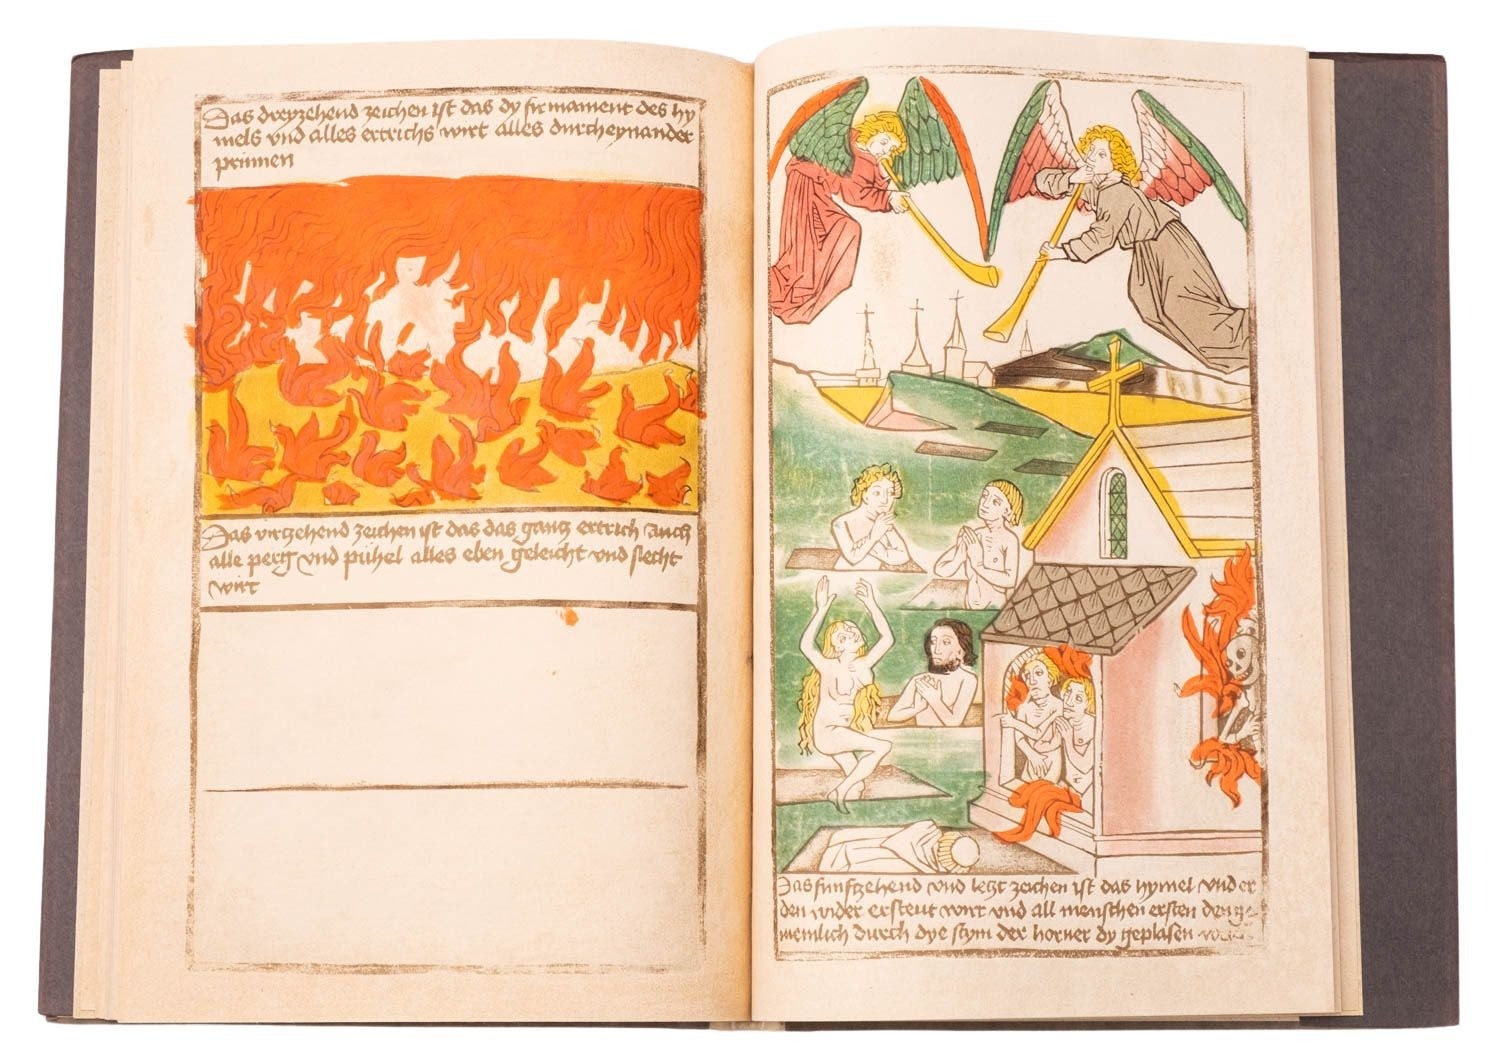 Das dreyzehend zeichen ist das dy firmament des hy
mels vnd alles ertrichs wirt alles durcheynander
prinnen
Das virzehend zeichen ist das das gantz ertrich auch
alle perg vnd pühel alles eben geleicht vnd slecht
wirt
Das funfzehend vnd letzt zeichen ist das hymel vnd er
den wider ersteut wirt vnd all menschen ersten den
meinlich durch dye stym der horner dy geplasen